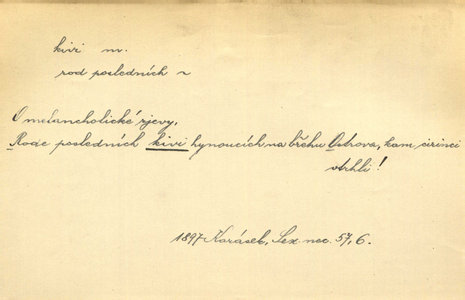 kivi m.
rod posledních ~
O melancholické zjevy,
Rode posledních kivi hynoucích na břehu Ostrova, kam cizinci
vtrhli!
1897 Karásek, Sex nec. 57, 6.